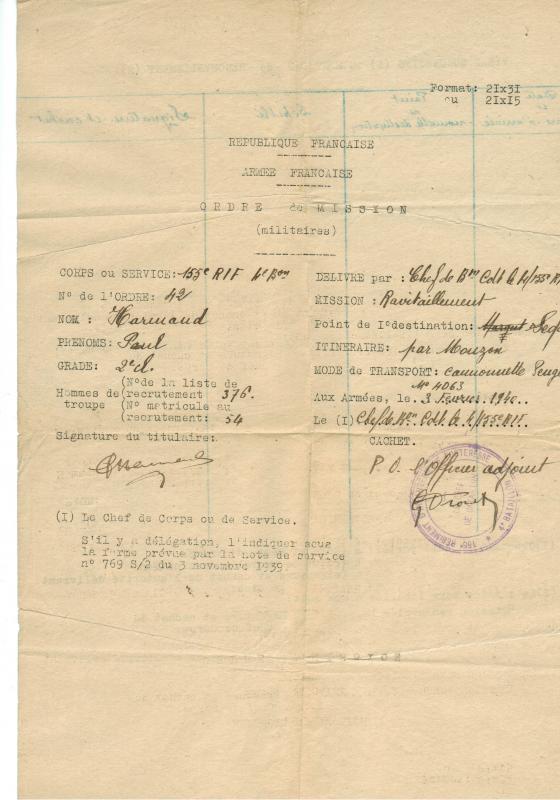 Format: 21x31
ou 21x15
REPUBLIQUE FRANCAISE
ARMEE FRANCAISE
ORDRE de MISSION
(militaires)
CORPS ou SERVICE: 155e RIF 4e Bon
N° de l'ORDRE: 42
NOM : Harmand
PRENOMS: Paul
GRADE: 2e cl.
Hommes de troupe
(N°de la liste de recrutement 376.
(N° matricule au recrutement: 54
Signature du titulaire:
DELIVRE par : Chef de Bon Cdt le 4/155e RIF
MISSION : Ravitaillement
Point de I°destination: Margut
ITINERAIRE: par Mouzon
MODE de TRANSPORT: camionnette
N° 4063
Aux Armées, le 3 Février 1940.
Le (I) Chef de Bon Cdt le 4/155e RIF.
CACHET.
P. O. l'Officier adjoint
(I) Le Chef de Corps ou de Service.
S'il y a délégation, l'indiquer sous
la forme prévue par la note de service
n° 769 S/2 du 3 novembre 1939.